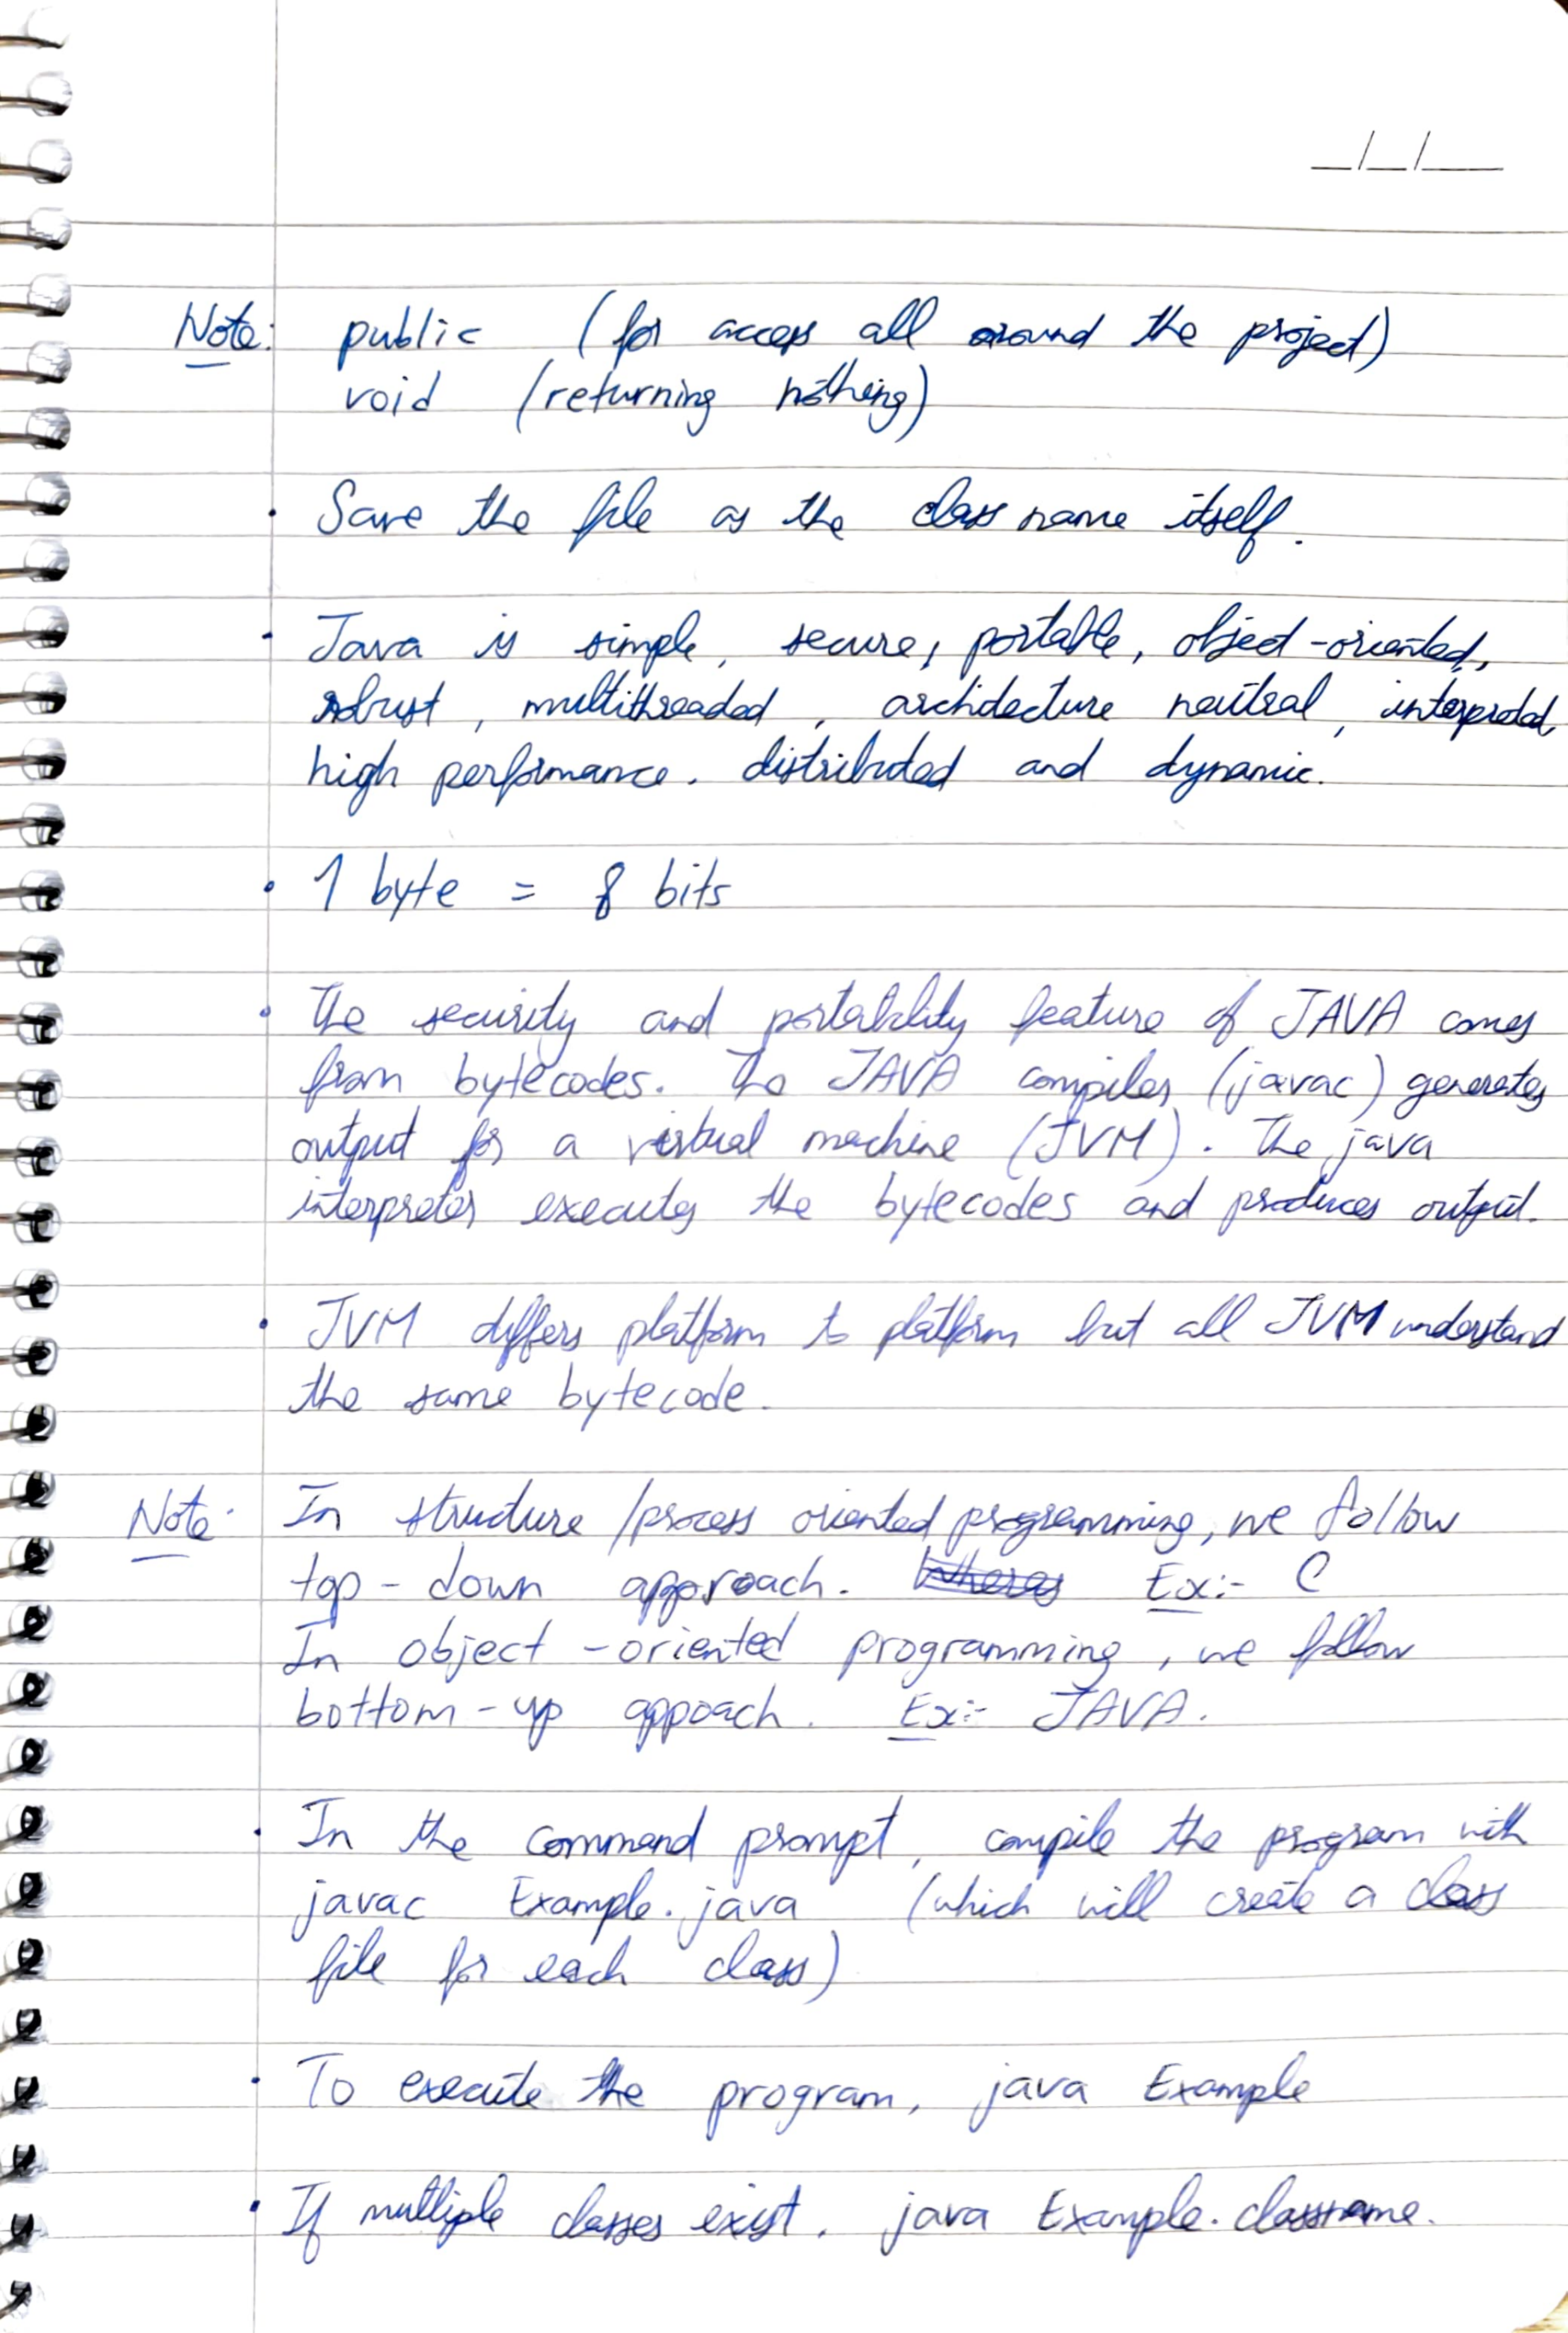 _/_/__
Note: public (for access all around the project)
void (returning nothing)
• Save the file as the class name itself.
• Java is simple, secure, portable, object-oriented,
robust, multithreaded, architecture neutral, interpreted,
high performance, distributed and dynamic.
• 1 byte = 8 bits
• The security and portability feature of JAVA comes
from bytecodes. The JAVA compiler (javac) generates
output for a virtual machine (JVM). The java
interpreter executes the bytecodes and produces output.
• JVM differs platform to platform but all JVM understand
the same bytecode.
Note: In structure/process oriented programming, we follow
top-down approach. Whereas Ex:- C
In object-oriented programming, we follow
bottom-up appoach. Ex:- JAVA.
• In the command prompt, compile the program with
javac Example.java (which will create a class
file for each class)
• To execute the program, java Example
• If multiple classes exist, java Example.classname.